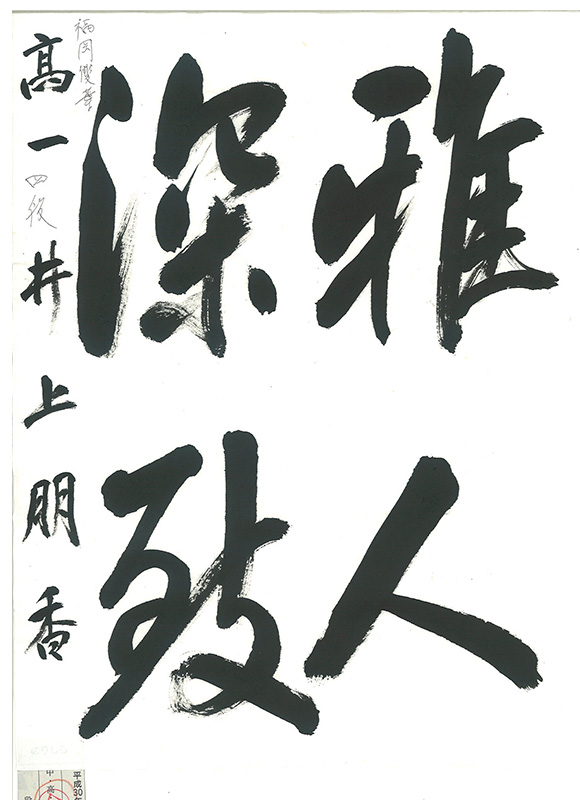 雅人
深致
高一 四段 井上朋香
福岡雙葉
平成30年
中・高